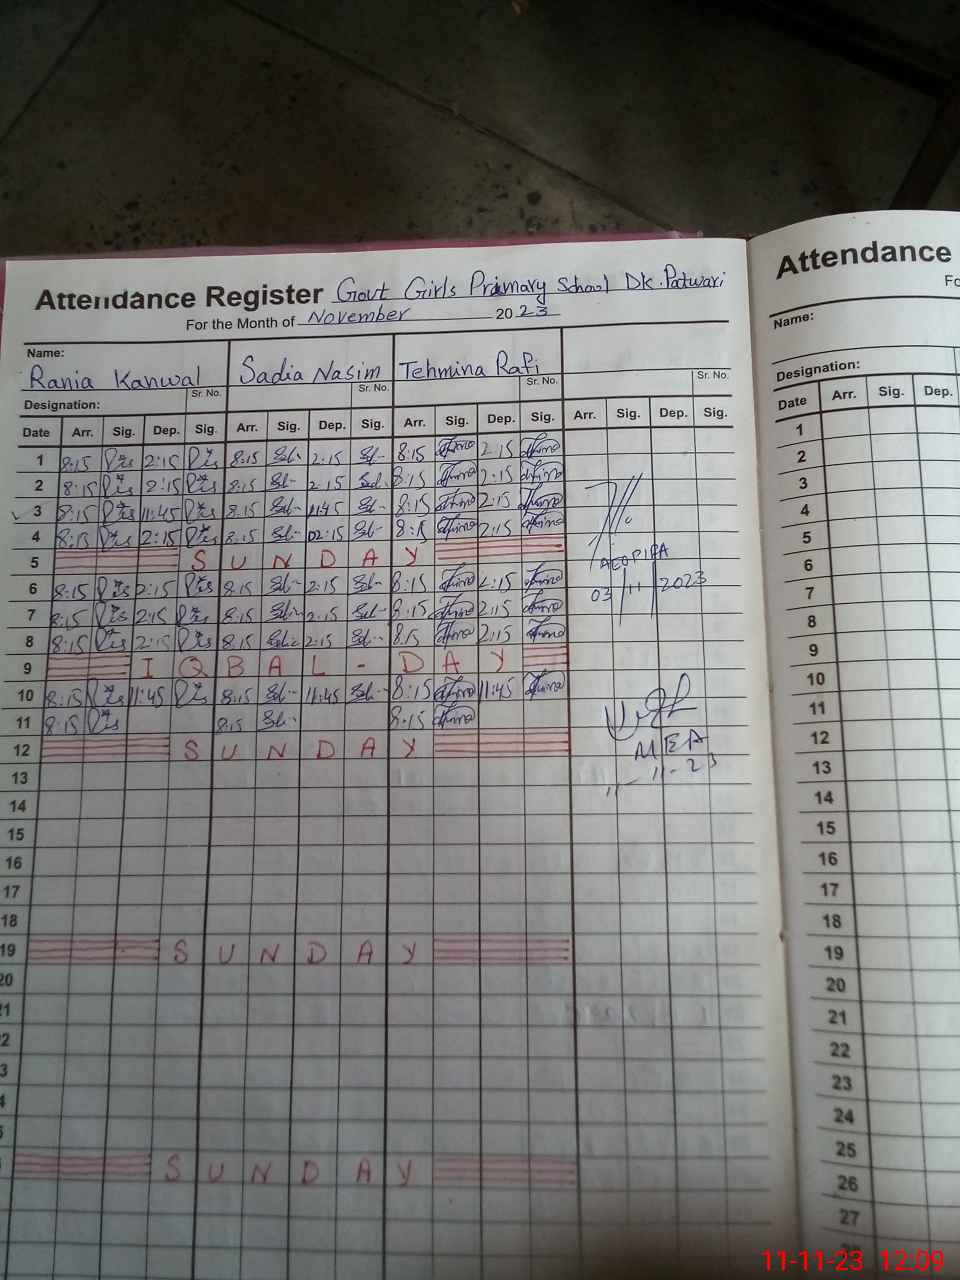 Attendance Register Govt Girls Primary School Dk. Patwari
For the Month of November 2023
Name:
Rania Kanwal Sadia Nasim Tehmina Rafi
Designation: Sr. No. Sr. No. Sr. No. Sr. No.
Date Arr. Sig. Dep. Sig. Arr. Sig. Dep. Sig. Arr. Sig. Dep. Sig. Arr. Sig. Dep. Sig.
1 8:15 2:15 8:15 2:15 8:15 2:15
2 8:15 2:15 8:15 2:15 8:15 2:15
3 8:15 11:45 8:15 11:45 8:15 2:15
4 8:15 2:15 8:15 02:15 8:15 2:15
5 SUNDAY
6 8:15 2:15 8:15 2:15 8:15 2:15
7 8:15 2:15 8:15 2:15 8:15 2:15
8 8:15 2:15 8:15 2:15 8:15 2:15
9 IQBAL - DAY
10 8:15 11:45 8:15 11:45 8:15 11:45
11 8:15 8:15 8:15
12 SUNDAY
13
14
15
16
17
18
19 SUNDAY
20
21
22
3
4
5
SUNDAY
03/11/2023
MEA
11-11-23
Attendance
Name:
Designation:
Date Arr. Sig. Dep.
1
2
3
4
5
6
7
8
9
10
11
12
13
14
15
16
17
18
19
20
21
22
23
24
25
26
27
11-11-23 12:09